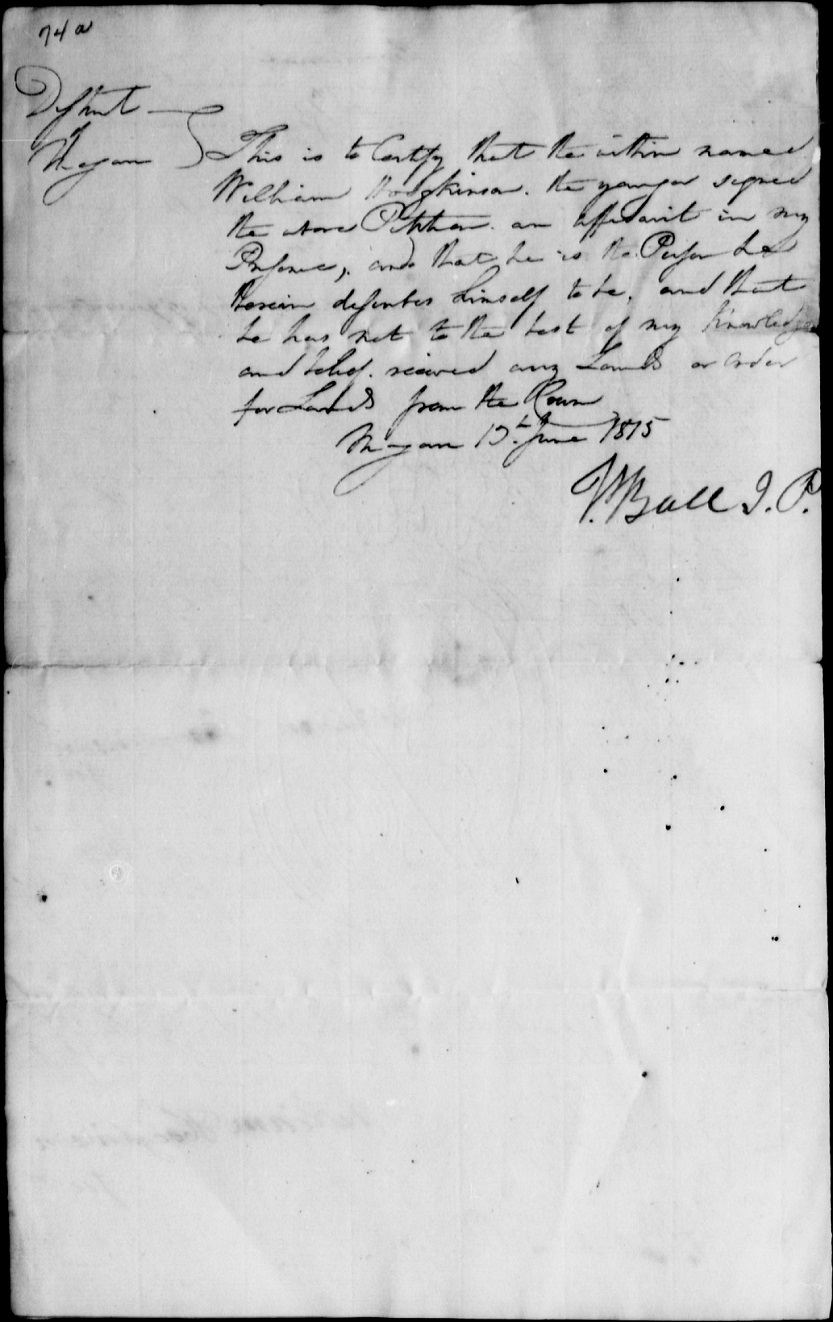 74 a
District
of
Niagara
This is to Certify that the within named
William Hodgkinson the younger signed
the above Petition an affidavit in my
Presence, and that he is the Person he
therein describes himself to be, and that
he has not to the best of my Knowledge
and belief received any Lands or order
for Lands from the Crown
Niagara June 1815
Ball J. P.